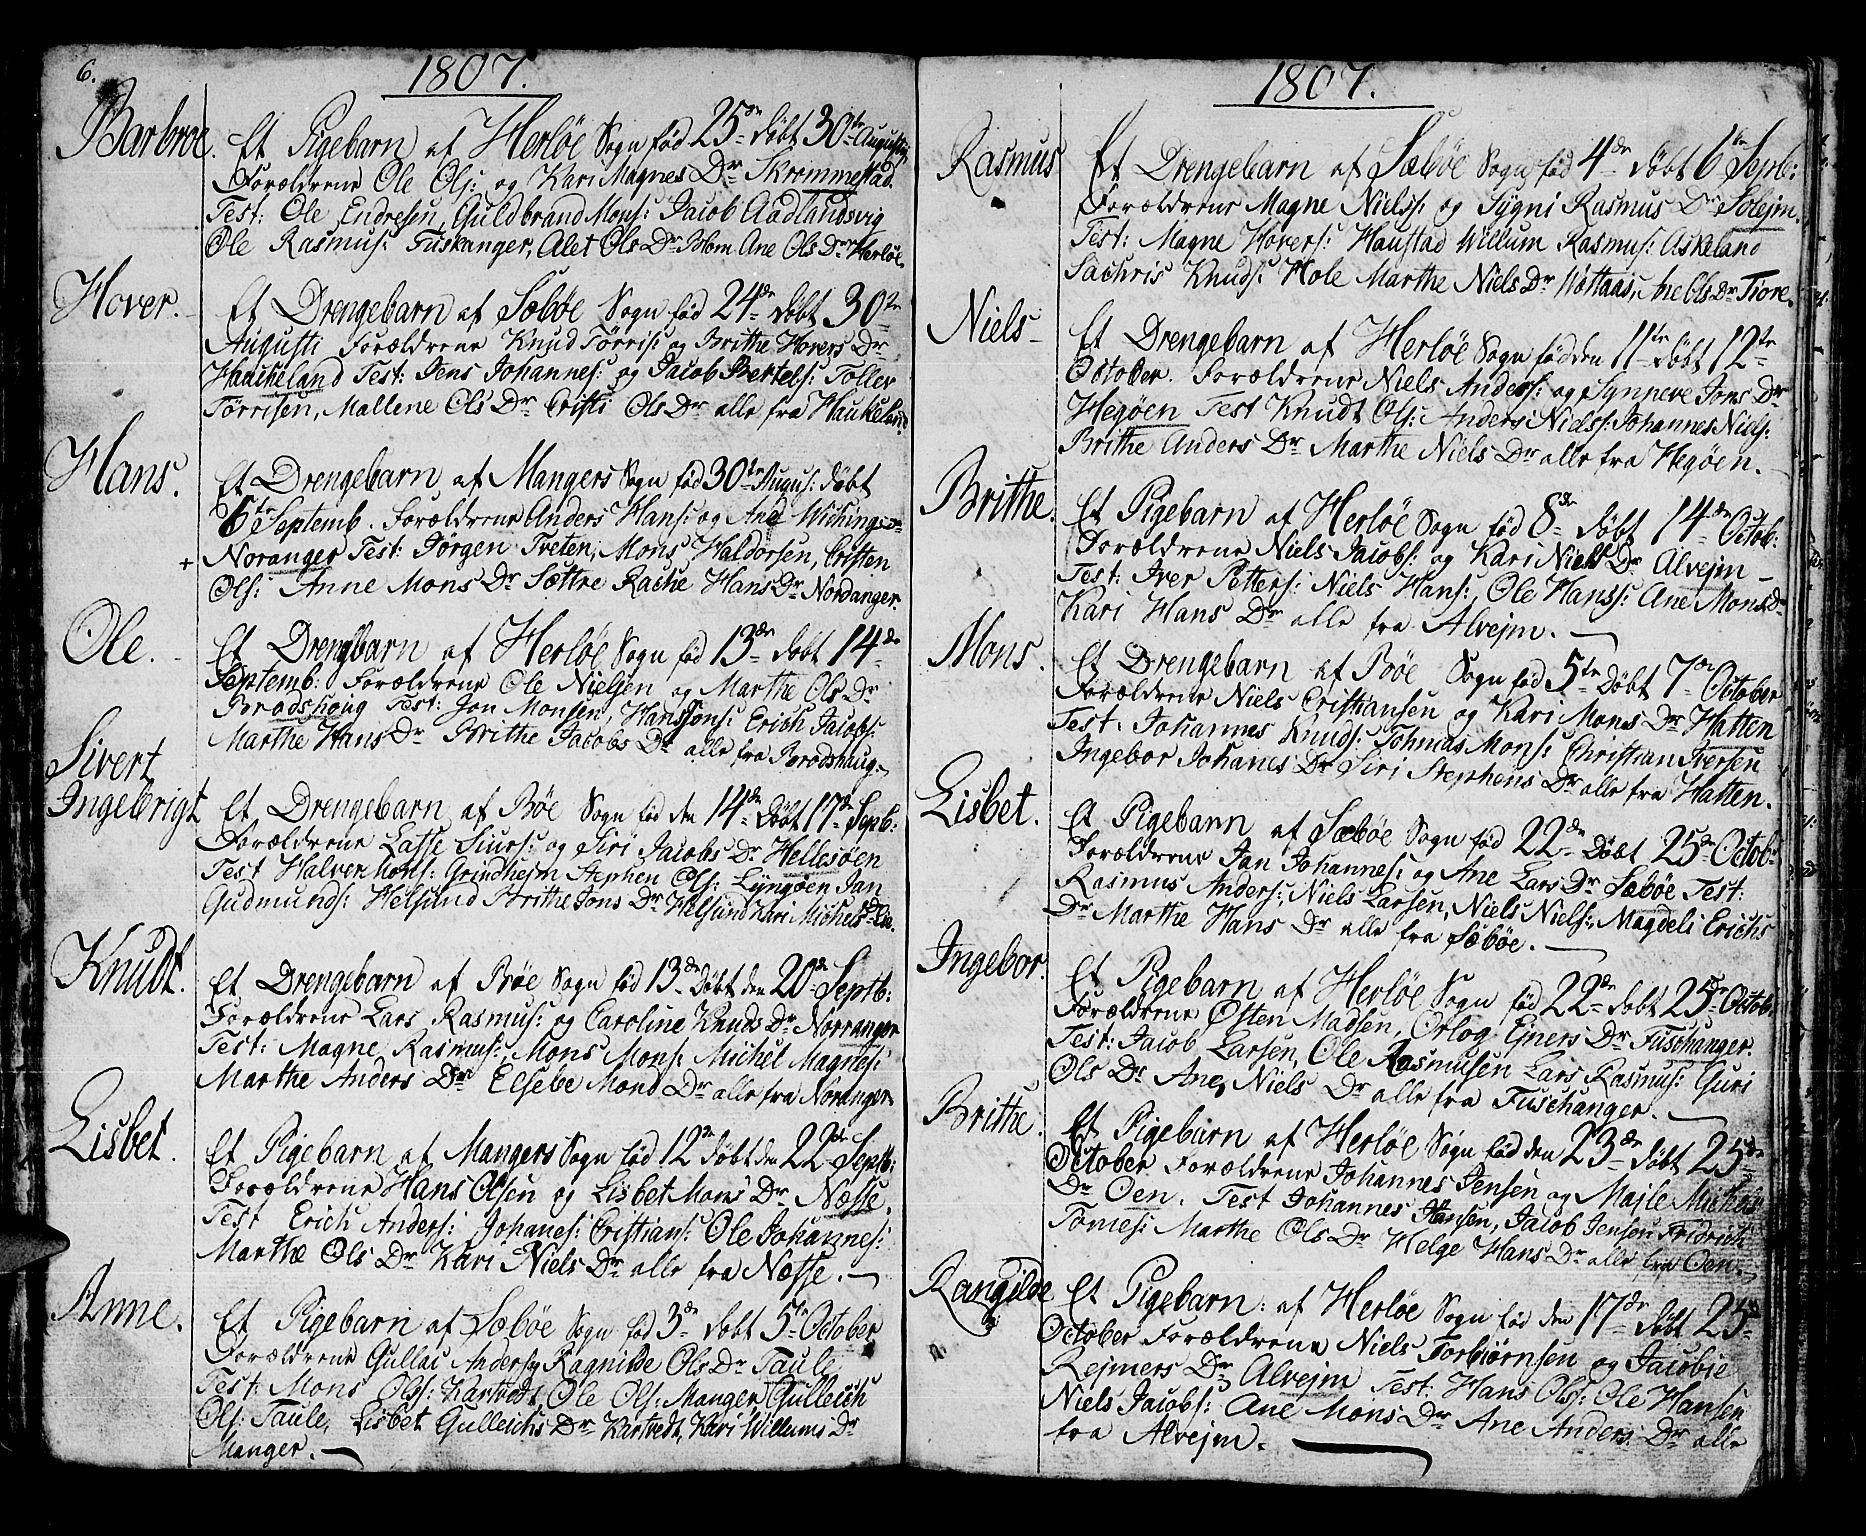 6.
1807.
Barbroe.
Et Pigebarn af Herløe Sogn fød 25de døbt 30te Augustij
Forældrene Ole Ols: og Kari Magnes Dr Skrommestad.
Test: Ole Endresen, Guldbrand Mons: Jacob Aadlandsvig
Ole Rasmus: Fuskanger, Alet Ols Dr Blom Ane Ols Dr Herløe.
Hover.
Et Drengebarn af Sæbøe Sogn fød 24de døbt 30te
Augusti Forældrene Knud Tørris: og Brithe Hovers Dr
Hauckeland Test: Jens Johannes: og Jacob Bertels: Toller
Tørrisen, Mallene Ols Dr Cristi Ols Dr alle fra Haukeland
Hans.
Et Drengebarn af Mangers Sogn fød 30te Augus: døbt
6te Septemb. Forældrene Anders Hans: og Ane Wichings
+ Noranger Test: Jørgen Tveten, Mons Haldorsen, Cristen
Ols: Anne Mons Dr Sættre Rache Hans Dr Nordanger.
Ole.
Et Drengebarn af Herløe Sogn fød 13de døbt 14de
Septemb: Forældrene Ole Nielsen og Marthe Ols Dr
Brodshoug Test: Jon Monsen, Hans Jons: Erich Jacobs:
Marthe Hans Dr Brithe Jacobs Dr alle fra Brodshaug.
Sivert
Ingebrigt
Et Drengebarn af Bøe Sogn fød den 14de Døbt 17de Septb:
Forældrene Lasse Siurs: og Siri Jacobs Dr Hellesøen
Test Halver Mons: Grindhejm Stephen Ols: Lyngøen Jan
Gudmunds: Helsund Brithe Jons Dr Helsund Kari Michels Dr
Knudt.
Et Drengebarn af Bøe Sogn fød 13de Døbt den 20de Septb:
Forældrene Lars Rasmus: og Caroline Knuds Dr Norranger
Test: Magne Rasmus: Mons Mons: Michel Magnes:
Marthe Anders Dr Elsebe Mons Dr alle fra Noranger.
Lisbet.
Et Pigebarn af Mangers Sogn fød 12te døbt den 22de Septb:
Forældrene Hans Olsen og Lisbet Mons Dr Næsse.
Test Erich Anders: Johanes: Cristians: Ole Johannes:
Marthe Ols Dr Kari Niels Dr alle fra Næsse.
Anne.
Et Pigebarn af Sæbøe Sogn fød 3de døbt 5te October
Forældrene Gullac Anders: Ragnilde Ols Dr Taule
Test: Mons Ols: Kartvedt, Ole Ols: Manger Gulleich
Ols: Taule, Lisbet Gulleichs Dr Kartvedt, Kari Willums Dr
Manger.
1807.
Rasmus
Et Drengebarn af Sæbøe Sogn fød 4de døbt 6te Septb:
Forældrene Magne Niels: og Sygni Rasmus Dr Solejm.
Test: Magne Hovers: Haustad Willum Rasmus: Askeland
Sachris Knuds: Hole Marthe Niels Dr Hottaas, Ane Ols Dr Fiore.
Niels
Et Drengebarn af Herløe Sogn fød den 11te døbt 12te
October. Forældrene Niels Anders: og Synneve Jons Dr
Hegøen Test Knudt Ols: Anders Niels: Johannes Niels:
Brithe Anders Dr Marthe Niels Dr alle fra Hegøen.
Brithe.
Et Pigebarn af Herløe Sogn fød 8de døbt 14de Octob:
Forældrene Niels Jacobs: og Kari Niels Dr Alvejm
Test: Iver Petters: Niels Hans: Ole Hans: Ane Mons Dr
Kari Hans Dr alle fra Alvejm.
Mons.
Et Drengebarn af Bøe Sogn fød 5te Døbt 7de October
Forældrene Niels Cristiansen og Kari Mons Dr Hatten
Test: Johannes Knuds: Tohmas Mons: Christian Iversen
Ingebor Johanes Dr Siri Stephens Dr alle fra Hatten.
Lisbet.
Et Pigebarn af Sæbøe Sogn fød 22de Døbt 25de Octob:
Forældrene Jan Johannes: og Ane Lars Dr Sæbøe Test:
Rasmus Anders: Niels Larsen, Niels Niels: Magdeli Erichs
Dr Marthe Hans Dr alle fra Sæbøe.
Ingebor.
Et Pigebarn af Herløe Sogn fød 22de døbt 25de Octob:
Forældrene Østen Madsen, Orlog Ejners Dr Fuschanger.
Test: Jacob Larsen, Ole Rasmusen Lars Rasmus: Guri
Ols Dr Ane Niels Dr alle fra Fuschanger.
Brithe.
Et Pigebarn af Herløe Sogn fød den 23de døbt 25de
October Forældrene Johannes Jensen og Majle Michels
Dr Oen. Test Johannes Hansen, Jacob Jensen Fridrich
Tomes: Marthe Ols Dr Helge Hans Dr alle fra Oen.
Rangilde
Et Pigebarn: af Herløe Sogn fød den 17de døbt 25de
October Forældrene Niels Torbiørnsen og Jacobie
Rejmers Dr Alvejm Test: Hans Ols: Ole Hansen
Niels Jacobs: Ane Mons Dr Ane Anders: Dr alle
fra Alvejm.